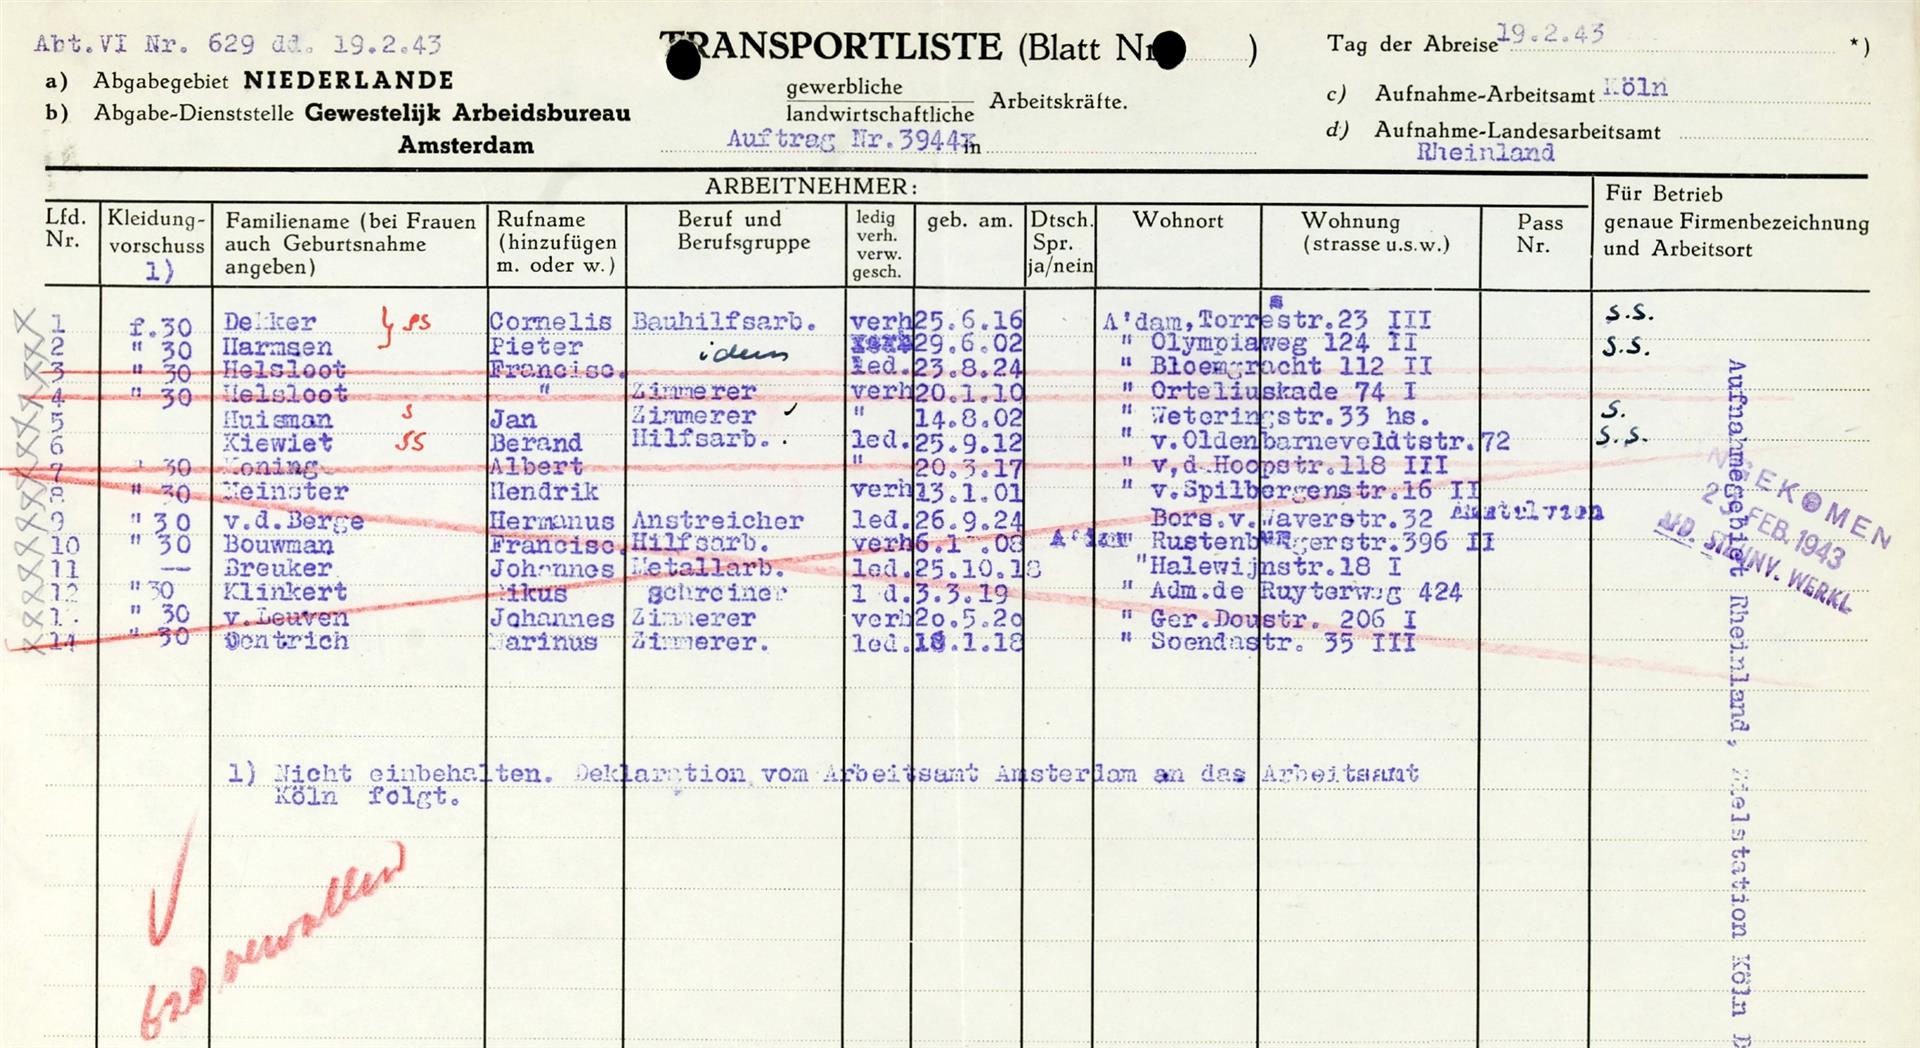 Abt.VI Nr. 629 dd. 19.2.43
TRANSPORTLISTE (Blatt Nr )
Tag der Abreise 19.2.43 *)
a) Abgabegebiet NIEDERLANDE
b) Abgabe-Dienststelle Gewestelijk Arbeidsbureau
Amsterdam
gewerbliche
landwirtschaftliche Arbeitskräfte.
Auftrag Nr.3944 in
c) Aufnahme-Arbeitsamt Köln
d) Aufnahme-Landesarbeitsamt
Rheinland
ARBEITNEHMER:
Lfd. Nr. | Kleidung-vorschuss 1) | Familiename (bei Frauen auch Geburtsnahme angeben) | Rufname (hinzufügen m. oder w.) | Beruf und Berufsgruppe | ledig verh. verw. gesch. | geb. am. | Dtsch. Spr. ja/nein | Wohnort | Wohnung (strasse u.s.w.) | Pass Nr. | Für Betrieb genaue Firmenbezeichnung und Arbeitsort
1 f.30 Dekker } ss Cornelis Bauhilfsarb. verh 25.6.16 A'dam, Torresstr.23 III S.S.
2 " 30 Harmsen Pieter idem 29.6.02 " Olympiaweg 124 II S.S.
3 " 30 Helsloot Francisc. led. 23.8.24 " Bloemgracht 112 II
4 " 30 Helsloot " Zimmerer verh 20.1.10 " Orteliuskade 74 I
5 Huisman s Jan Zimmerer " 14.8.02 " Weteringstr.33 hs. S.
6 Kiewiet SS Berand Hilfsarb. led. 25.9.12 " v.Oldenbarneveldtstr.72 S.S.
7 " 30 Koning Albert " 20.3.17 " v,d.Hoopstr.118 III
8 " 30 Meinster Hendrik verh 13.1.01 " v.Spilbergenstr.16 II
9 " 30 v.d.Berge Hermanus Anstreicher led. 26.9.24 Bors.v.Waverstr.32 Amstelveen
10 " 30 Bouwman Francisc. Hilfsarb. verh A'dam " Rustenburgerstr.396 II
11 — Breuker Johannes Metallarb. led. 25.10.18 " Halewijnstr.18 I
12 " 30 Klinkert Rikus schreiner led. 3.3.19 " Adm.de Ruyterweg 424
13 " 30 v.Leuven Johannes Zimmerer verh 20.5.20 " Ger.Doustr. 206 I
14 " 30 Oentrich Marinus Zimmerer. led. 18.1.18 " Soendastr. 35 III
1) Nicht einbehalten. Deklaration vom Arbeitsamt Amsterdam an das Arbeitsamt
Köln folgt.
Aufnahmegebiet Rheinland, Zielstation Köln
INGEKOMEN
23 FEB. 1943
AFD. WERKL.